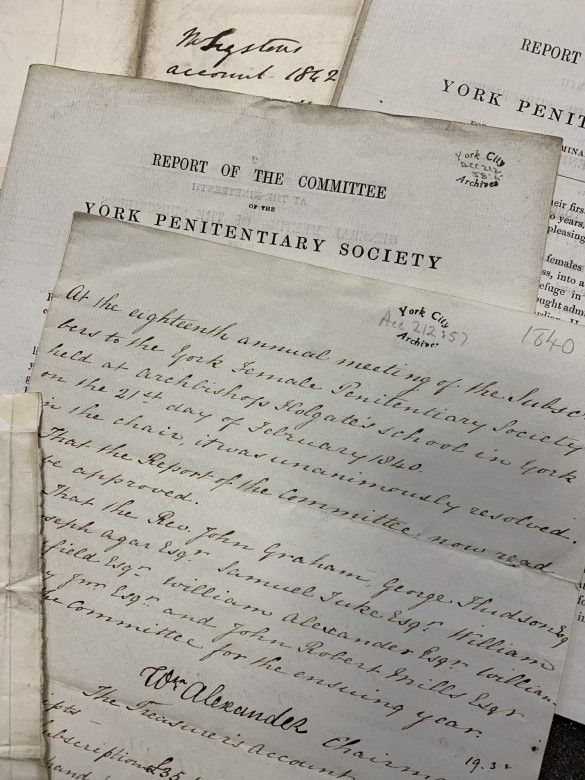 account 1842
REPORT
YORK PENIT
REPORT OF THE COMMITTEE
OF THE
YORK PENITENTIARY SOCIETY
York City
Archives
MINA
heir firs
o years.
pleasing
females
ss, into a
efuge in
ought adm
York City
Acc 212:57
Archives
1840
At the eighteenth annual meeting of the Subsc
bers to the York Female Penitentiary Society
held at Archbishop Holgate's school in York
on the 21st day of February 1840.
in the chair, it was unanimously resolved.
That the Report of the Committee now read
be approved.
That the Rev. John Graham, George Hudson Esq
seph Agar Esqr. Samuel Tuke Esqr. William
field Esqr. William Alexander Esqr William
y Junr. Esqr. and John Robert Mills Esqr
he Committee for the ensuing year.
Wm Alexander Chairm
The Treasurer's account
ipts
ubscriptions £35
hand
19.3